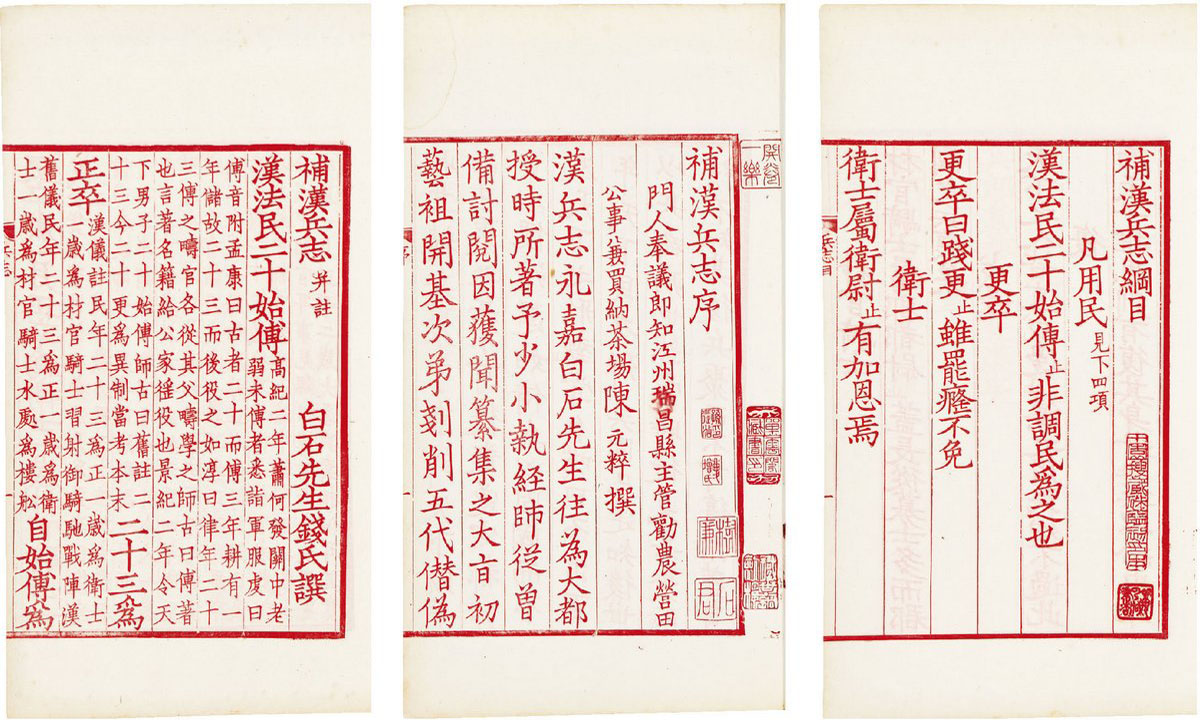 補漢兵志綱目
凡用民見下四項
漢法民二十始傅止非調民為之也
更卒
更卒曰踐更止雖罷癃不免
衛士
衛士屬衛尉止有加恩焉
兵志目
開卷一樂
補漢兵志序
門人奉議郎知江州瑞昌縣主管勸農營田
公事兼買納茶場陳元粹撰
漢兵志永嘉白石先生往為大都
授時所著予少小執經師從曾
備討閱因獲聞纂集之大旨初
藝祖開基次弟剗削五代僭偽
序
補漢兵志并註
白石先生錢氏譔
漢法民二十始傅高紀二年蕭何發關中老
弱未傅者悉詣軍服虔曰
傅音附孟康曰古者二十而傅三年耕有一
年儲故二十三而後役之如淳曰律年二十
三傅之疇官各從其父疇學之師古曰傅著
也言著名籍給公家徭役也景紀二年令天
下男子二十始傅師古曰舊註二
十三今二十更為異制當考本末二十三為
正卒漢儀註民年二十三為正一歲為衛士
一歲為材官騎士習射御騎馳戰陣漢
舊儀民年二十三為正一歲為衛
士一歲為材官騎士水處為樓舩自始傅為
兵志
一